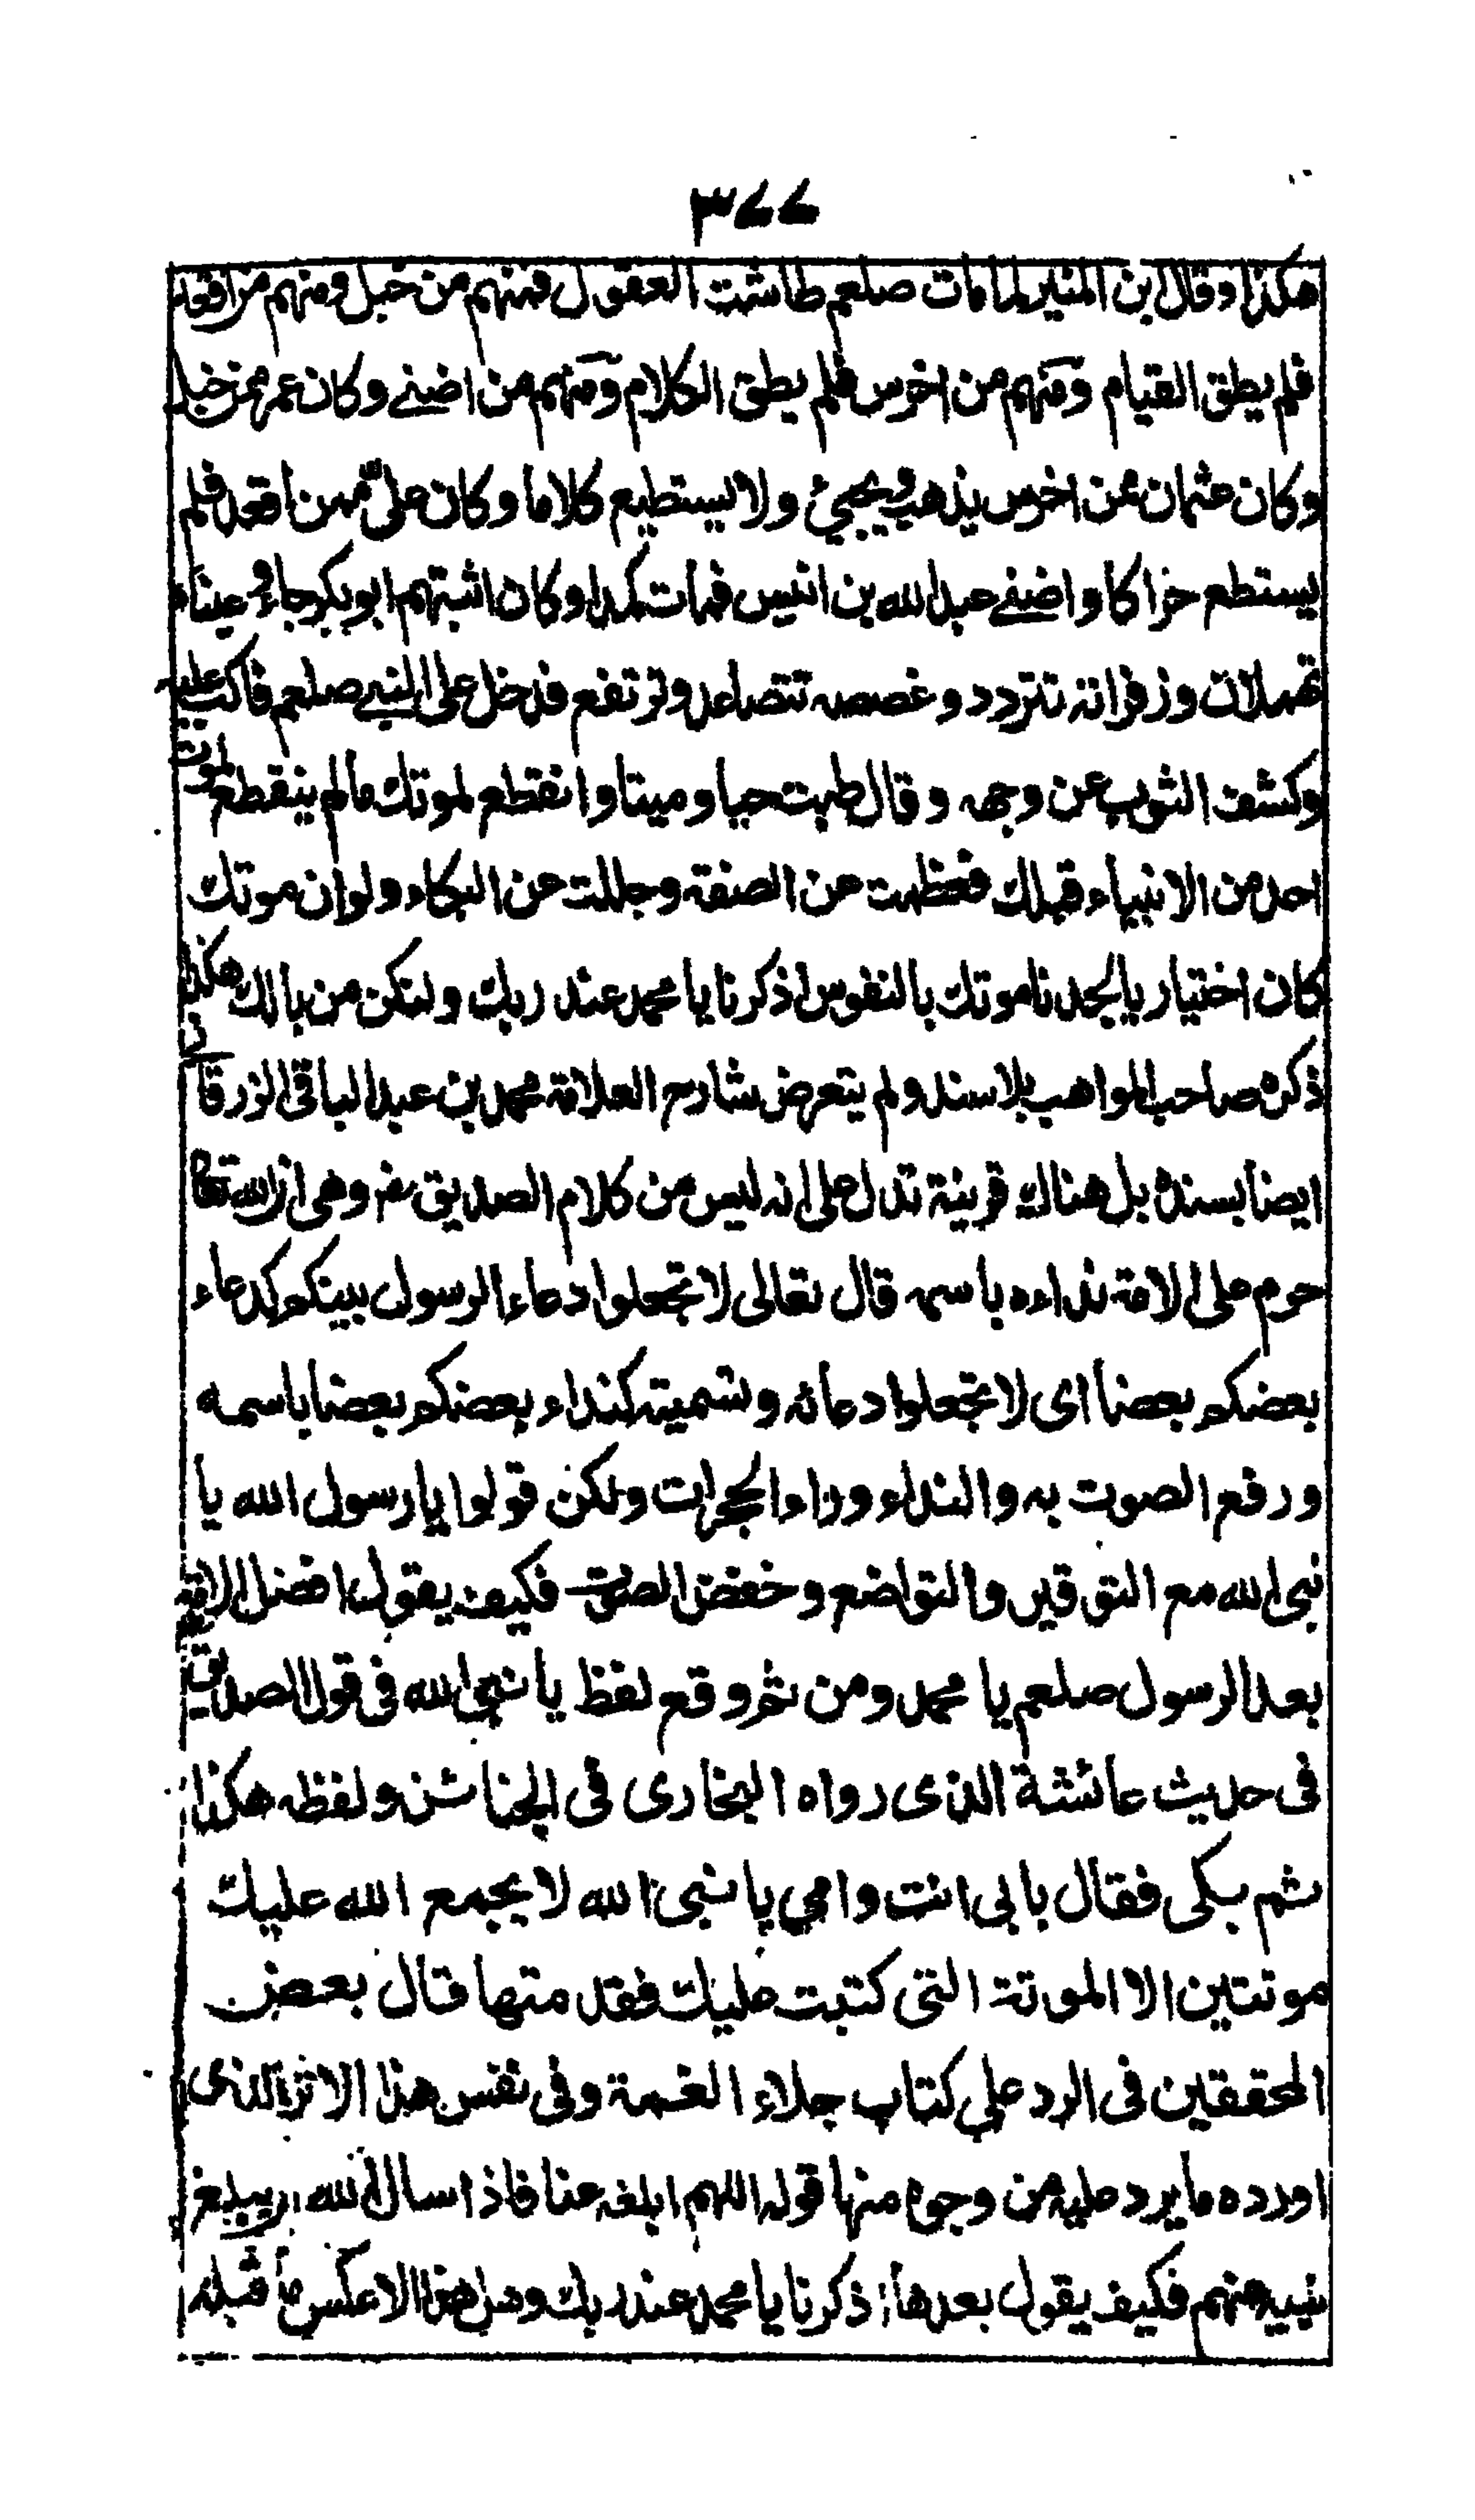 ٣٤٤
هكذا وقال ابن المنير لما مات صلعم طاشت العقول فمنهم من خبل ومنهم من اقعد
فلم يطق القيام ومنهم من اخرس فلم يطق الكلام ومنهم من اضنى وكان عمر ممن خبل
وكان عثمان ممن اخرس يذهب ويجيئ ولا يستطيع كلاما وكان على ممن اقعد فلم
يستطع حراكا واضنى عبد الله بن انيس فمات كمدا وكان اثبتهم ابو بكر جاء وعيناه
تهملان وزفراته تتردد وغصصه تتصاعد وترتفع فدخل على النبى صلعم فاكب عليه
وكشف الثوب عن وجهه وقال طبت حيا وميتا وانقطع لموتك ما لم ينقطع لموت
احد من الانبياء قبلك فعظمت عن الصفة وجللت عن البكاء ولو ان موتك
كان اختيار يا لجدنا موتك بالنفوس اذكرنا يا محمد عند ربك ولنكن من بالك هكذا
ذكره صاحب المواهب بلا سند ولم يتعرض شارح العلامة محمد بن عبد الباقى الزرقانى
ايضا بسنده بل هناك قرينة تدل على انه ليس من كلام الصديق رض وهى ان الله تعالى
حرم على الامة نداءه باسمه قال تعالى لا تجعلوا دعاء الرسول بينكم كدعاء
بعضكم بعضا اى لا تجعلوا دعائه وتسميته كنداء بعضكم بعضا باسمه
ورفع الصوت به والنداء وراء الحجرات ولكن قولوا يا رسول الله يا
نبى الله مع التوقير والتواضع وخفض الصوت فكيف يقول افضل الامة
بعد الرسول صلعم يا محمد ومن ثم وقع لفظ يا نبى الله فى قول الصديق
فى حديث عائشة الذى رواه البخارى فى الجنائز ولفظه هكذا
ثم بكى فقال بابى انت وامي يا نبى الله لا يجمع الله عليك
موتتين الا الموتة التى كتبت عليك فقد متها قال بعض
المحققين فى الرد علي كتاب جلاء الغمة وفى نفس هذا الاثر الذى
اورده ما يرد عليه من وجوه منها قوله اللهم ابلغه عنا فاذا سال الله ان يبلغ
نبيه عنهم فكيف يقول بعدها اذكرنا يا محمد عند ربك وهل هذا الا عكس ما قبله